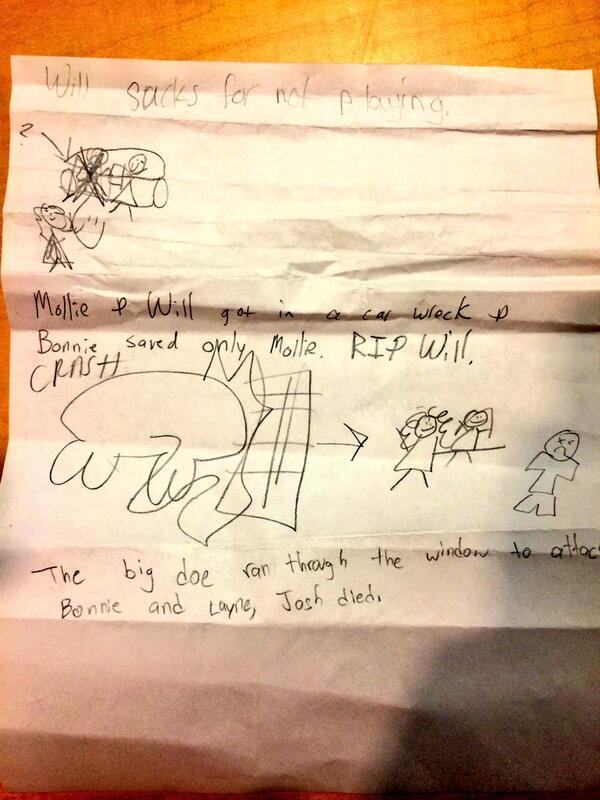 Will sucks for not playing.
2
Mollie & Will got in a car wreck &
Bonnie saved only Mollie. RIP Will.
CRASH
The big doe ran through the window to attac
Bonnie and Layne, Josh died.